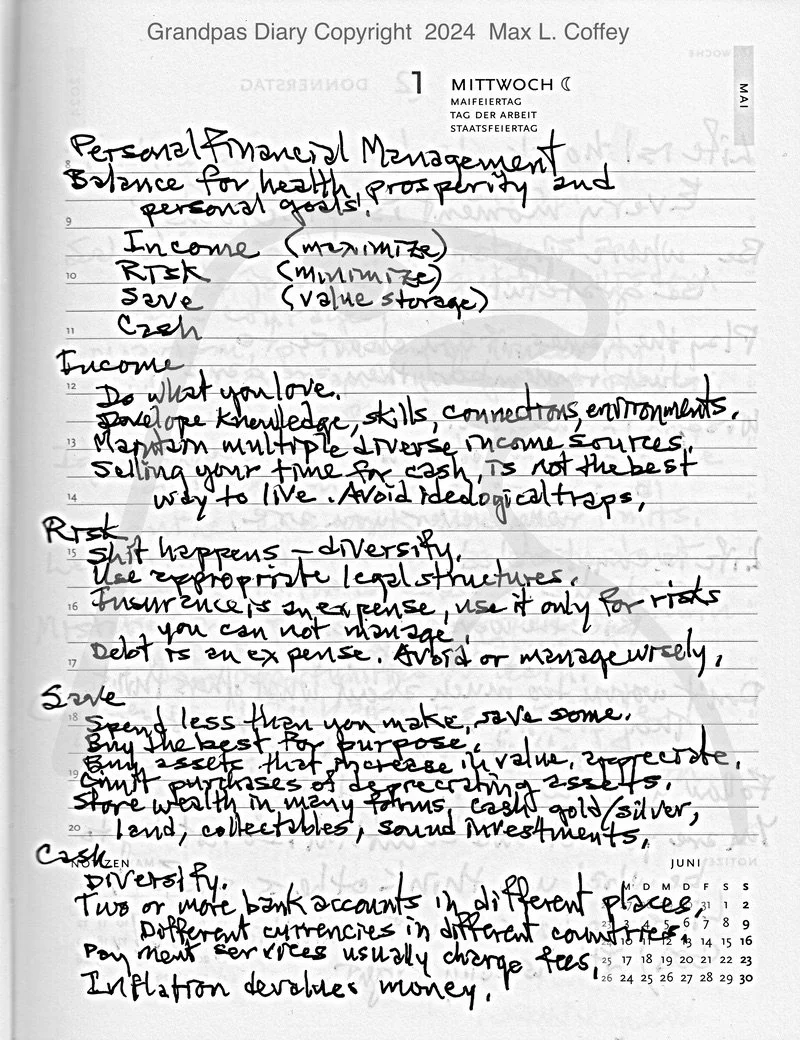 Grandpas Diary Copyright 2024 Max L. Coffey
1 MITTWOCH
MAIFEIERTAG
TAG DER ARBEIT
STAATSFEIERTAG
MAI
Personal Financial Management
8
Balance for health, prosperity and
personal goals!
9
Income (maximize)
10 Risk (minimize)
Save (value storage)
11 Cash
Income
12
Do what you love.
Develope knowledge, skills, connections, environments.
13 Maintain multiple diverse income sources.
Selling your time for cash, is not the best
14 way to live. Avoid ideological traps.
Risk
15 Shit happens – diversify.
Use appropriate legal structures.
16 Insurance is an expense, use it only for risks
you can not manage.
17 Debt is an expense. Avoid or manage wisely.
Save
18 Spend less than you make, save some.
Buy the best for purpose.
Buy assets that increase in value, appreciate.
19 Limit purchases of deprecrating assets.
Store wealth in many forms, cash, gold/silver,
20 land, collectables, sound investments.
Cash
NOTIZEN
JUNI
Diversify.
M D M D F S S
Two or more bank accounts in different places,
31 1 2
Different currencies in different countries.
23 3 4 5 6 7 8 9
10 11 12 13 14 15 16
Payment services usually charge fees.
25 17 18 19 20 21 22 23
Inflation devalues money.
26 24 25 26 27 28 29 30